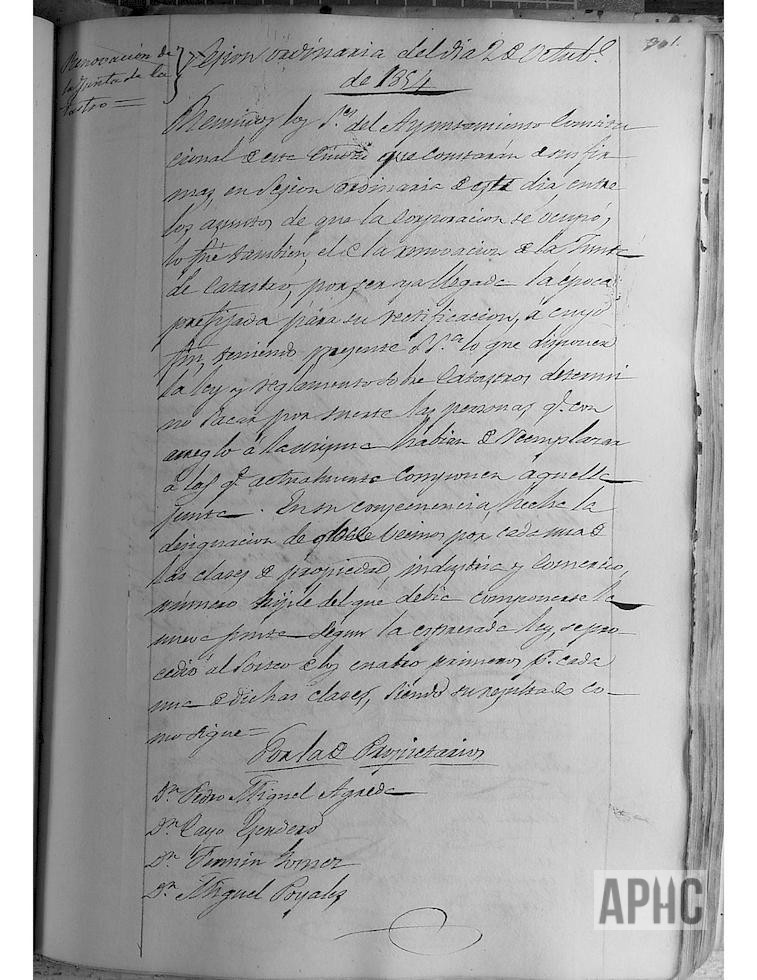 301.
Renovación de
la Junta de Ca
tastro =
Sesion ordinaria del dia 2 de Octub.e
de 1854
Reunidos los S.res del Ayuntamiento Constitu
cional de esta Ciudad que constarán de sus fir
mas, en Sesion ordinaria de este dia entre
los asuntos de que la Corporacion se ocupó,
lo fué tambien, el de la renovacion de la Junta
de Catastro, por ser ya llegada la epoca
prefijada para su rectificacion, á cuyo
fin, teniendo presente S.S.a lo que disponen
la ley y reglamento sobre Catastros determi
nó sacar por suerte las personas q.e con
arreglo á la misma habian de reemplazar
á los q.e actualmente componen aquella
Junta. En su consecuencia, hecha la
designacion de doce vecinos por cada una de
las clases de propiedad, industria y comercio,
número triple del que debia componerse la
nueva junta segun la espresada ley, se pro-
cedió al sorteo de los cuatro primeros p.r cada
una de dichas clases, siendo su resultado co-
mo sigue =
Por la de Propietarios
D.n Pedro Miguel Agreda
D.n Cayo
D.n Fermin Gomez
D.n Miguel Poyales
APHC